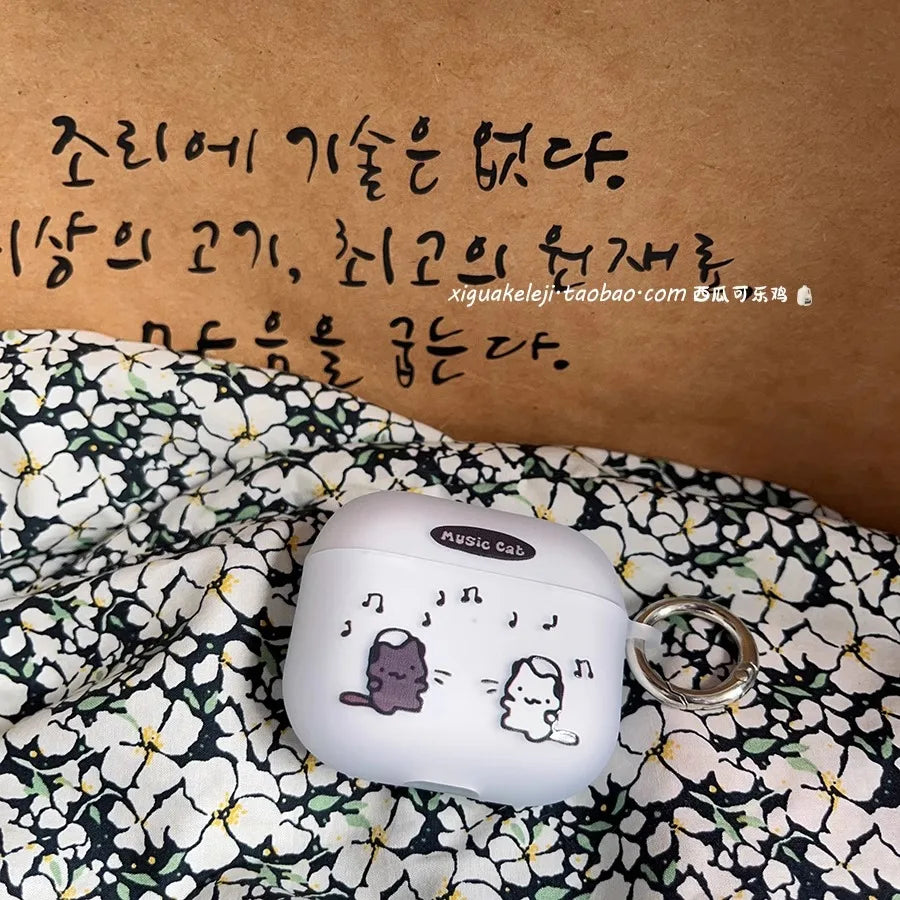 조리에 기술은 없다.
이상의 고기, 최고의 원재료,
xiguakeleji·taobao·com 西瓜可乐鸡
마음을 굽는다.
Music Cat